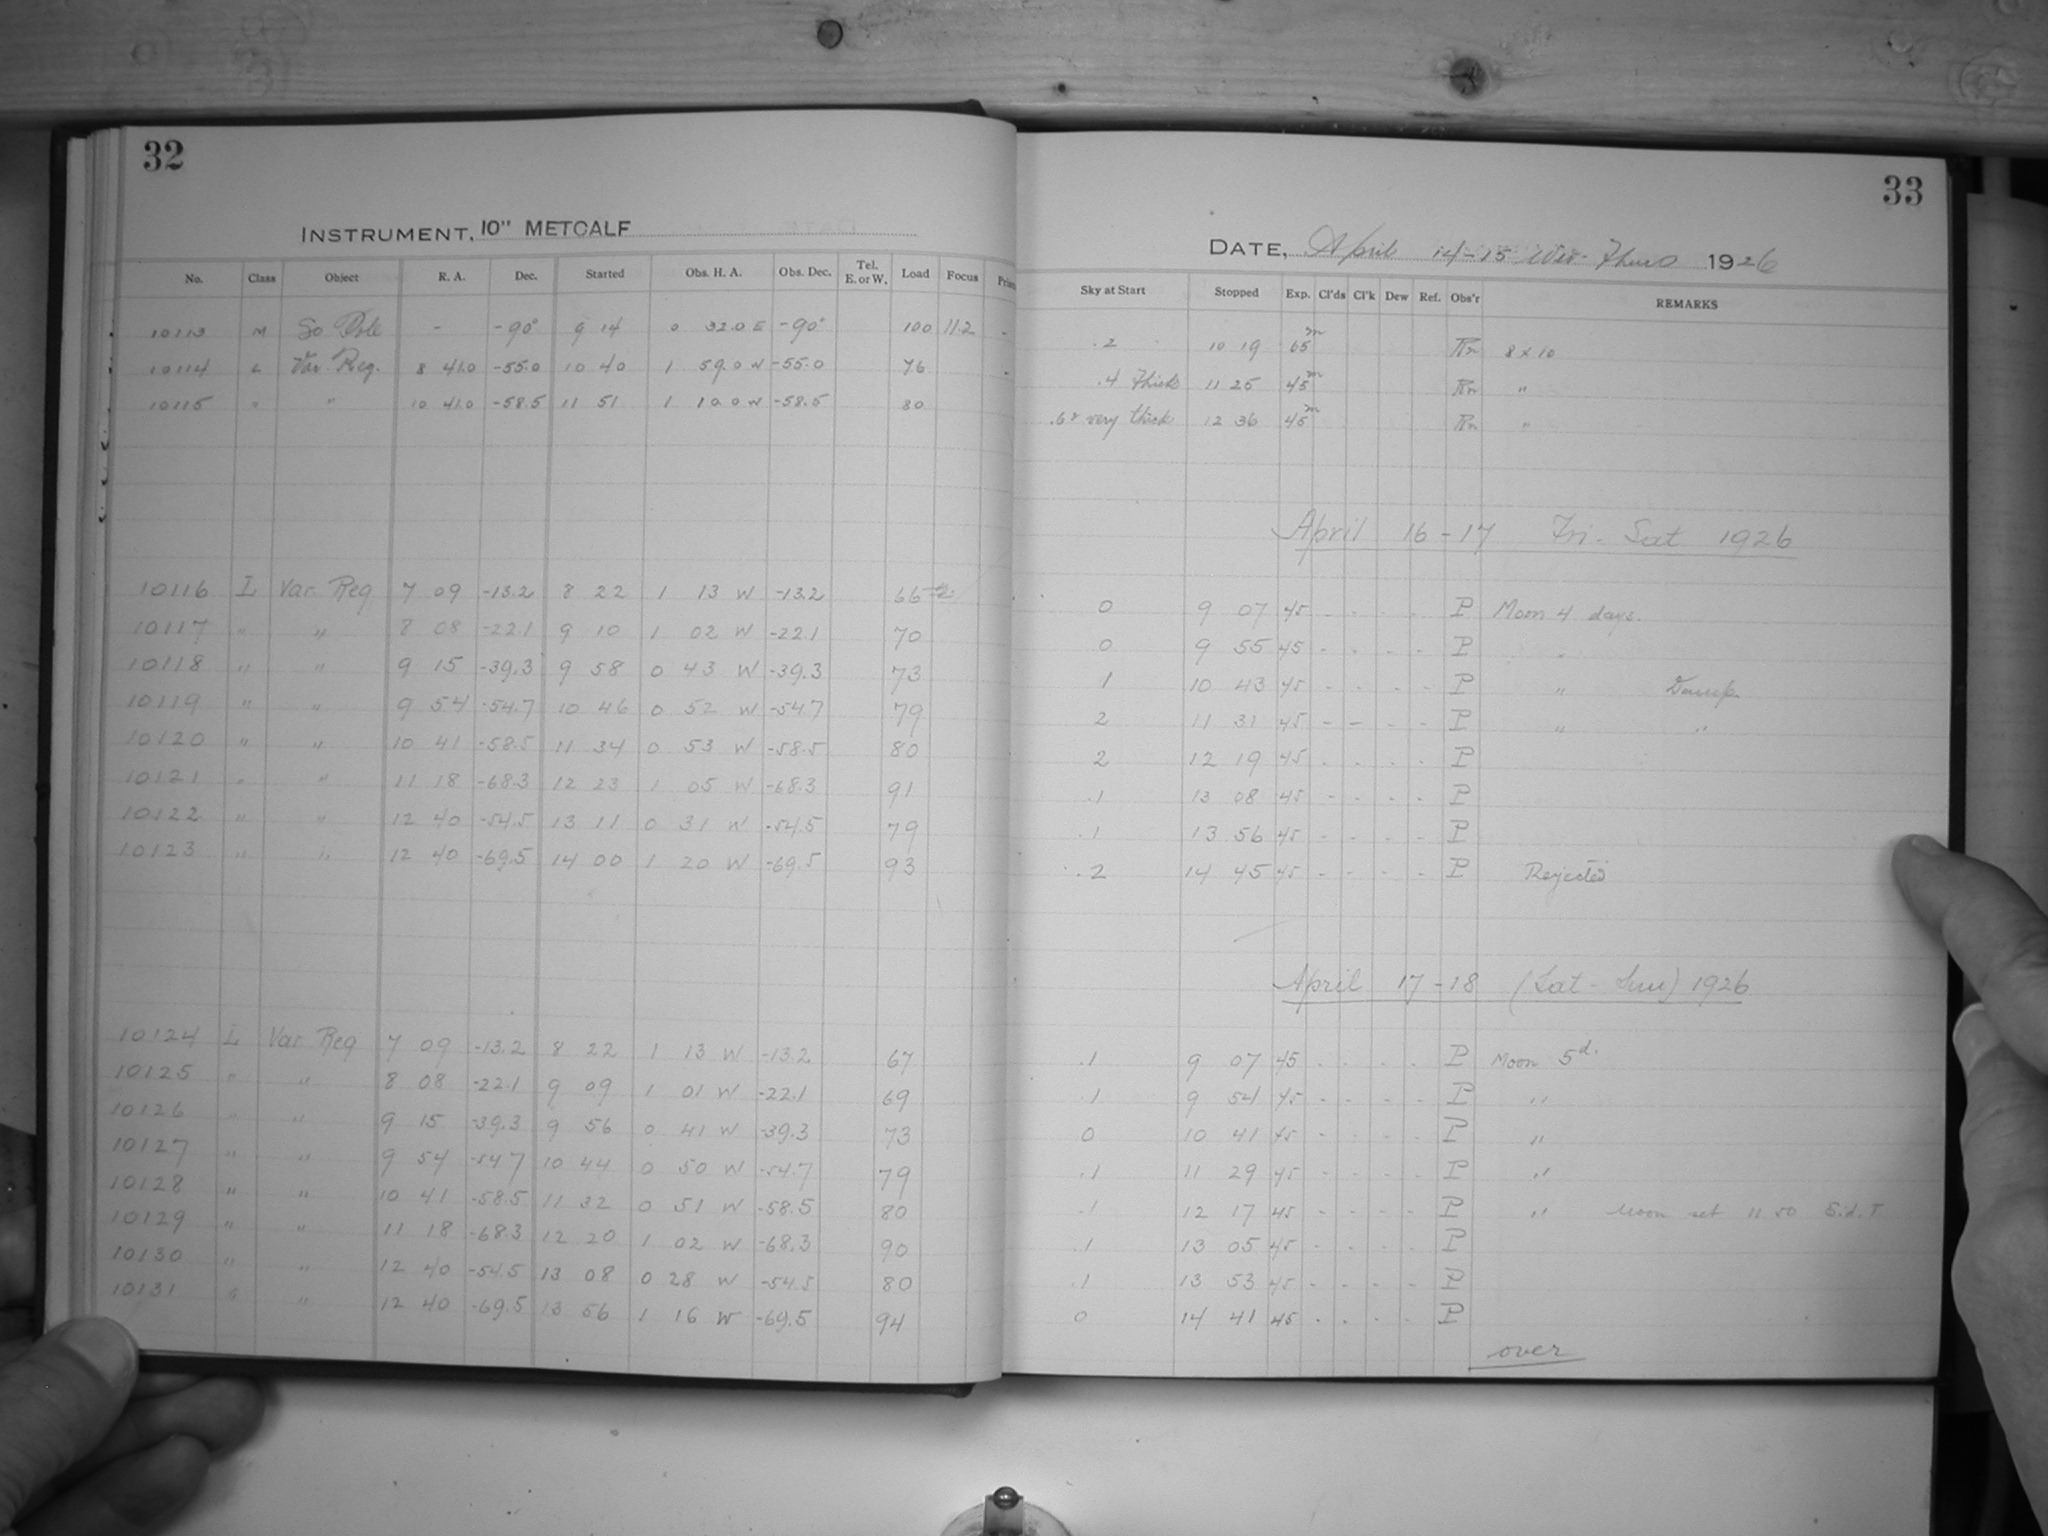 32
INSTRUMENT, 10" METCALF
No. Class Object R. A. Dec. Started Obs. H. A. Obs. Dec. Tel. E. or W. Load Focus
10113 M So Pole - -90° 9 14 0 32.0 E -90° 100 11.2 -
10114 L Var. Reg. 8 41.0 -55.0 10 40 1 59.0 W -55.0 76 -
10115 " " 10 41.0 -58.5 11 51 1 10.0 W -58.5 80
10116 L Var Reg 7 09 -13.2 8 22 1 13 W -13.2 66
10117 " " 8 08 -22.1 9 10 1 02 W -22.1 70
10118 " " 9 15 -39.3 9 58 0 43 W -39.3 73
10119 " " 9 54 -54.7 10 46 0 52 W -54.7 79
10120 " " 10 41 -58.5 11 34 0 53 W -58.5 80
10121 " " 11 18 -68.3 12 23 1 05 W -68.3 91
10122 " " 12 40 -54.5 13 11 0 31 W -54.5 79
10123 " " 12 40 -69.5 14 00 1 20 W -69.5 93
10124 L Var Reg 7 09 -13.2 8 22 1 13 W -13.2 67
10125 " " 8 08 -22.1 9 09 1 01 W -22.1 69
10126 " " 9 15 -39.3 9 56 0 41 W -39.3 73
10127 " " 9 54 -54.7 10 44 0 50 W -54.7 79
10128 " " 10 41 -58.5 11 32 0 51 W -58.5 80
10129 " " 11 18 -68.3 12 20 1 02 W -68.3 90
10130 " " 12 40 -54.5 13 08 0 28 W -54.5 80
10131 " " 12 40 -69.5 13 56 1 16 W -69.5 94
33
DATE, April 14-15 Thurs 1926
Sky at Start Stopped Exp. Cl'ds Cl'k Dew Ref. Obs'r REMARKS
.2 10 19 65m 8 x 10
.4 Thick 11 25 45m "
very thick 12 36 45m "
April 16-17 Fri-Sat 1926
0 9 07 45 - - - - P Moon 4 days.
0 9 55 45 - - - - P "
1 10 43 45 - - - - P " Damp
2 11 31 45 - - - - P " "
2 12 19 45 - - - - P
.1 13 08 45 - - - - P
.1 13 56 45 - - - - P
.2 14 45 45 - - - - P Rejected
April 17-18 (Sat-Sun) 1926
.1 9 07 45 - - - - P Moon 5d.
.1 9 54 45 - - - - P "
0 10 41 45 - - - - P "
.1 11 29 45 - - - - P "
.1 12 17 45 - - - - P " Moon set 11 50 Sid. T
.1 13 05 45 - - - - P
.1 13 53 45 - - - - P
0 14 41 45 - - - - P
over